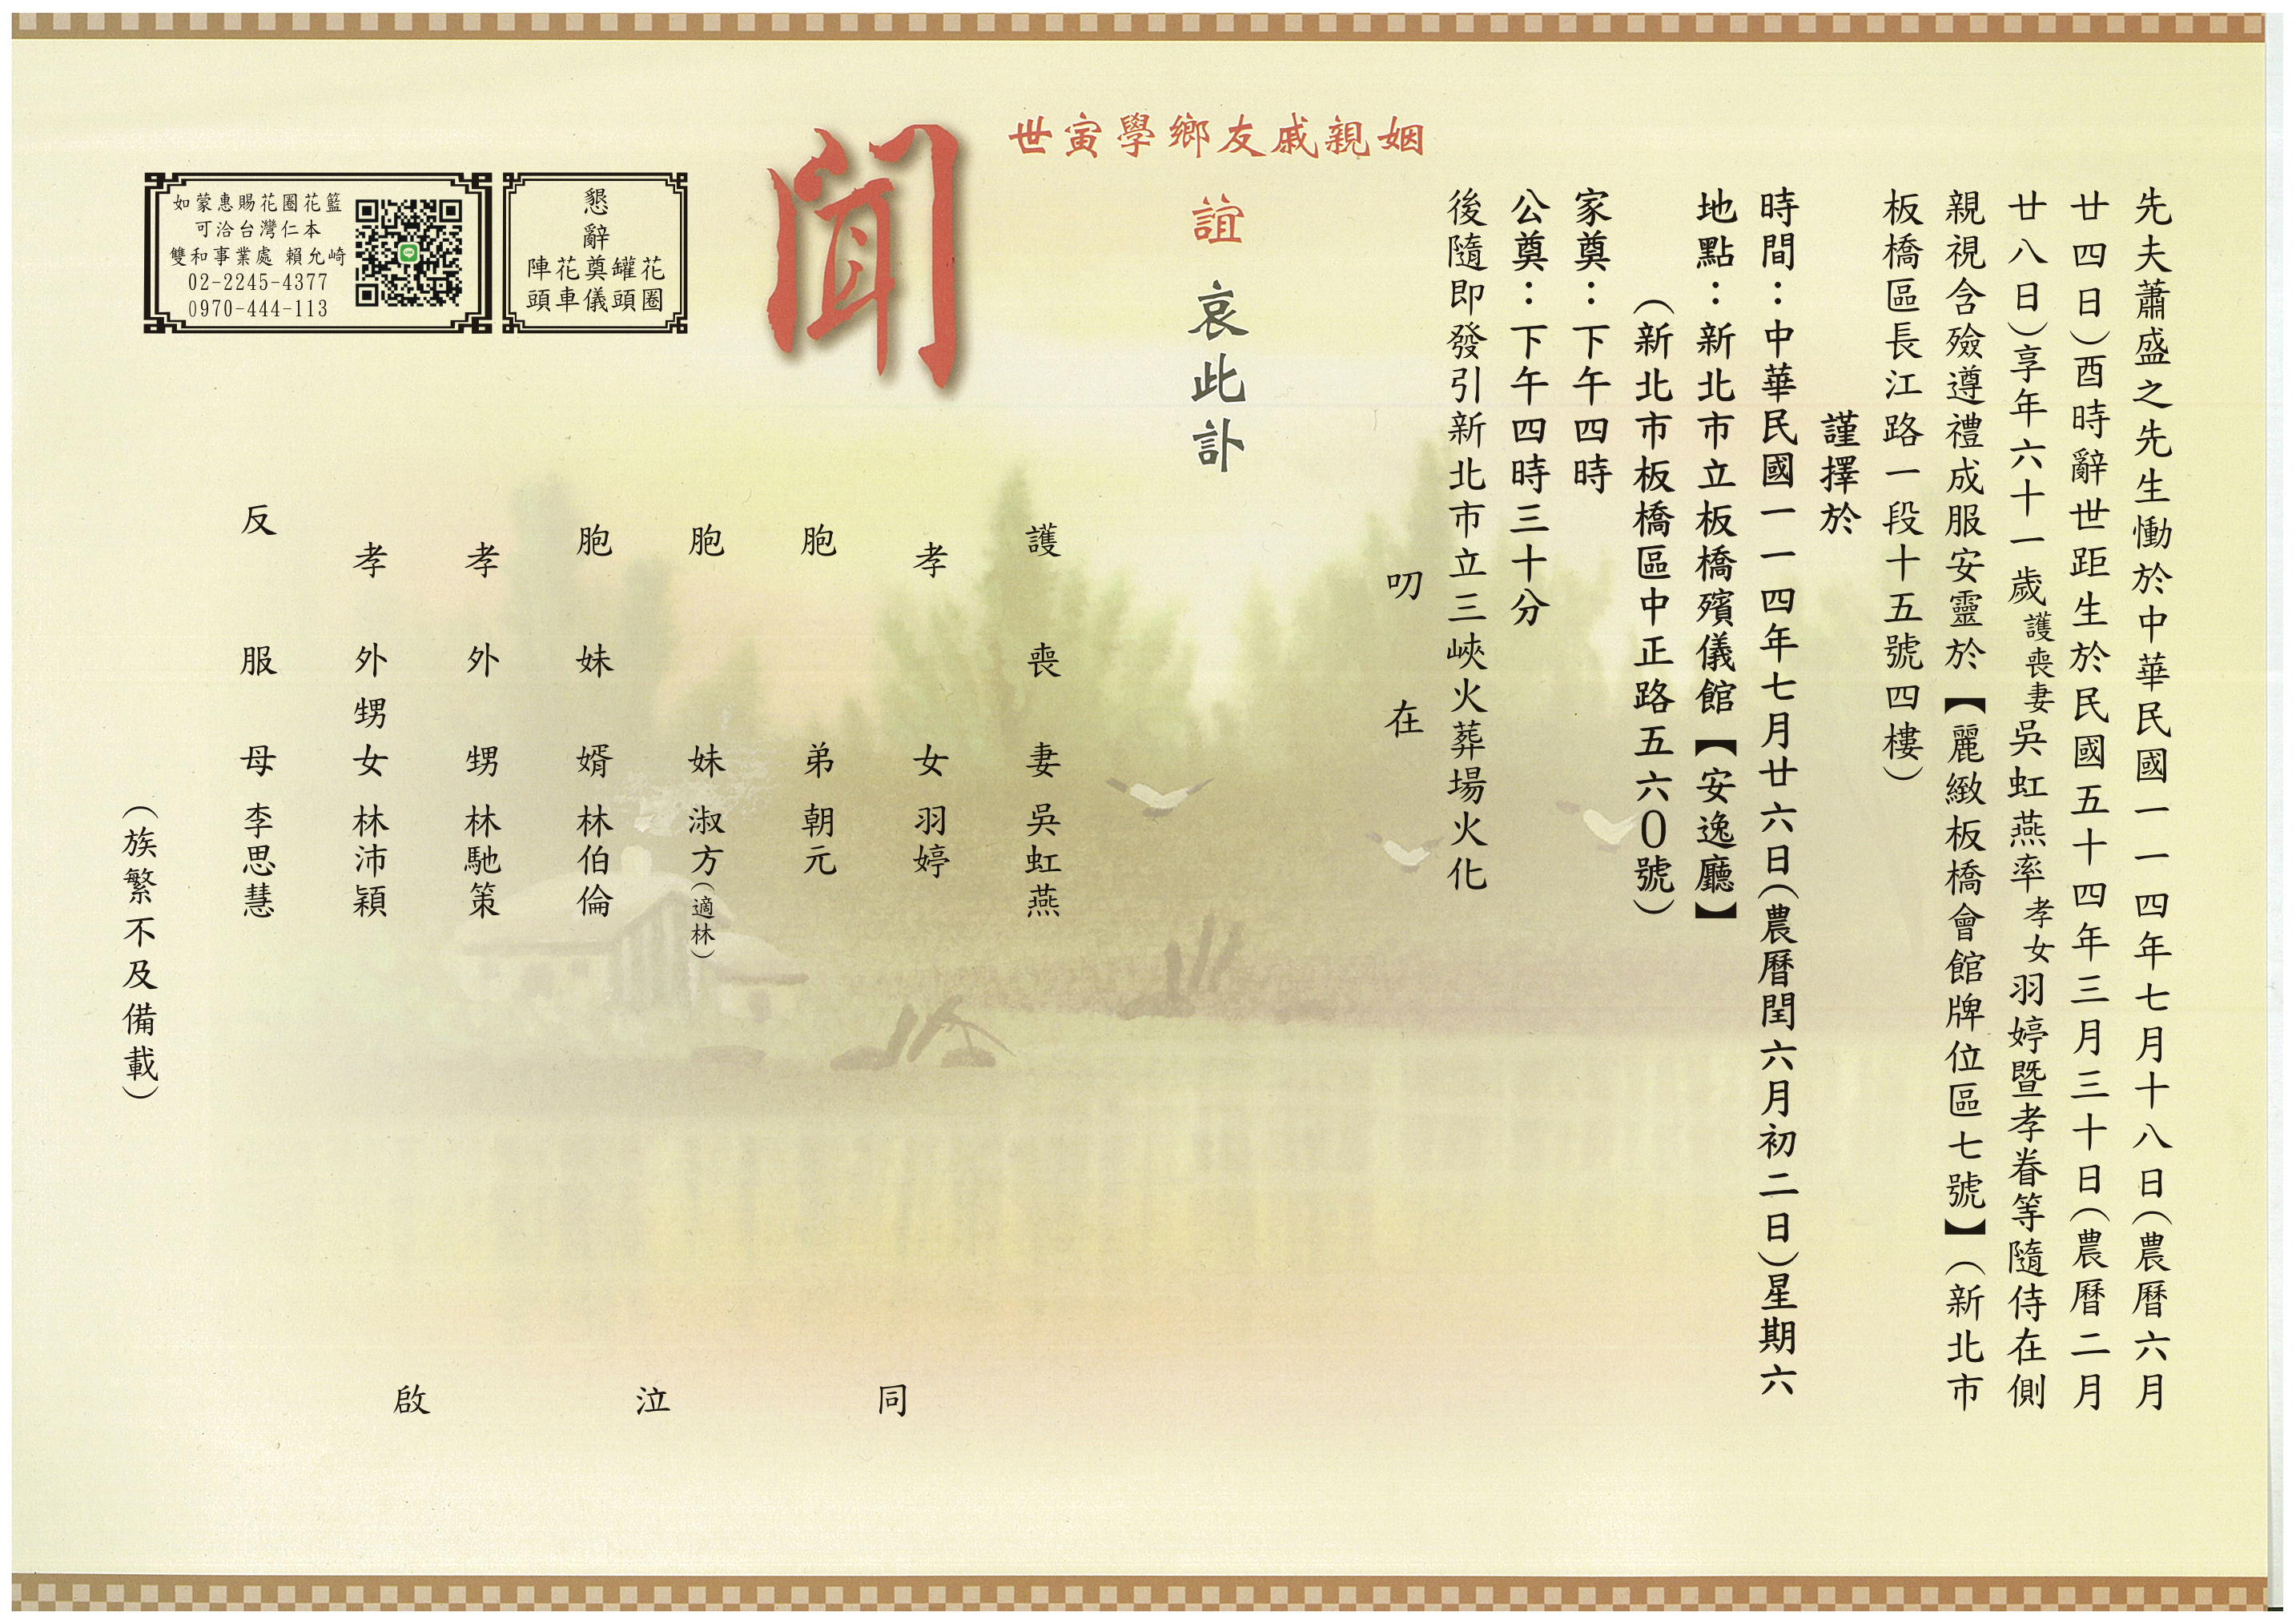 先夫蕭盛之先生慟於中華民國一一四年七月十八日(農曆六月
廿四日)酉時辭世距生於民國五十四年三月三十日(農曆二月
廿八日)享年六十一歲護喪妻吳虹燕率孝女羽婷暨孝眷等隨侍在側
親視含殮遵禮成服安靈於【麗緻板橋會館牌位區七號】(新北市
板橋區長江路一段十五號四樓)
謹擇於
時間：中華民國一一四年七月廿六日(農曆閏六月初二日)星期六
地點：新北市立板橋殯儀館【安逸廳】
(新北市板橋區中正路五六0號)
家奠：下午四時
公奠：下午四時三十分
後隨即發引新北市立三峽火葬場火化
叨在
姻親戚友鄉學寅世
誼 哀此訃
聞
護喪妻 吳虹燕
孝女 羽婷
胞弟 朝元
胞妹 淑方(適林)
胞妹婿 林伯倫
孝外甥 林馳策
孝外甥女 林沛穎
反服母 李思慧
(族繁不及備載)
同泣啟
懇
辭
花圈
罐頭
奠儀
花車
陣頭
如蒙惠賜花圈花籃
可洽台灣仁本
雙和事業處 賴允崎
02-2245-4377
0970-444-113